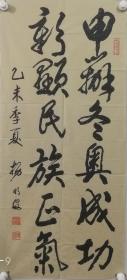 申办冬奥成功
彰顯民族正氣
乙未季夏 楊